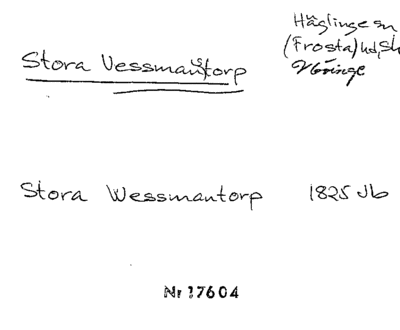 Häglinge sn
Stora Vessmanstorp
(Frosta) hd, Sk
Stora Wessmantorp 1825 Jb
Nr 17604